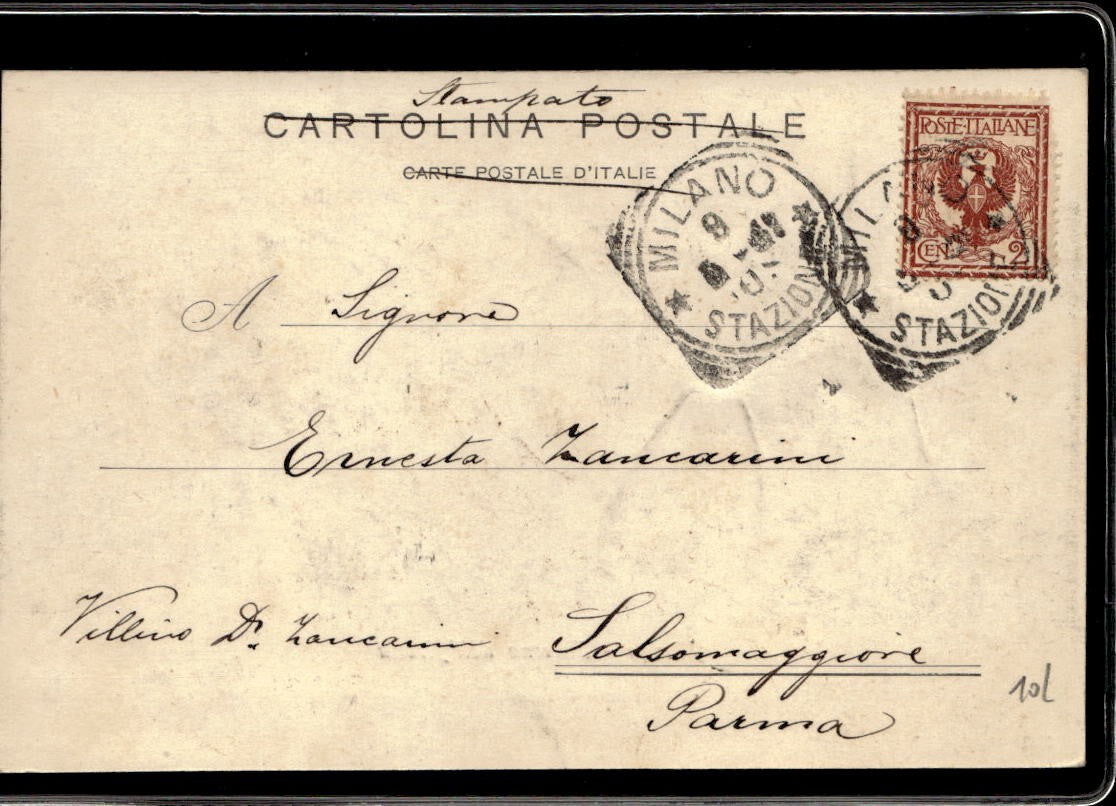 Stampato
CARTOLINA POSTALE
CARTE POSTALE D'ITALIE
POSTE-ITALIANE
CEN 2
MILANO
8
STAZION
MILANO
8
STAZION
A Signora
Ernesta Zancarini
Villino Dr. Zancarini
Salsomaggiore
Parma